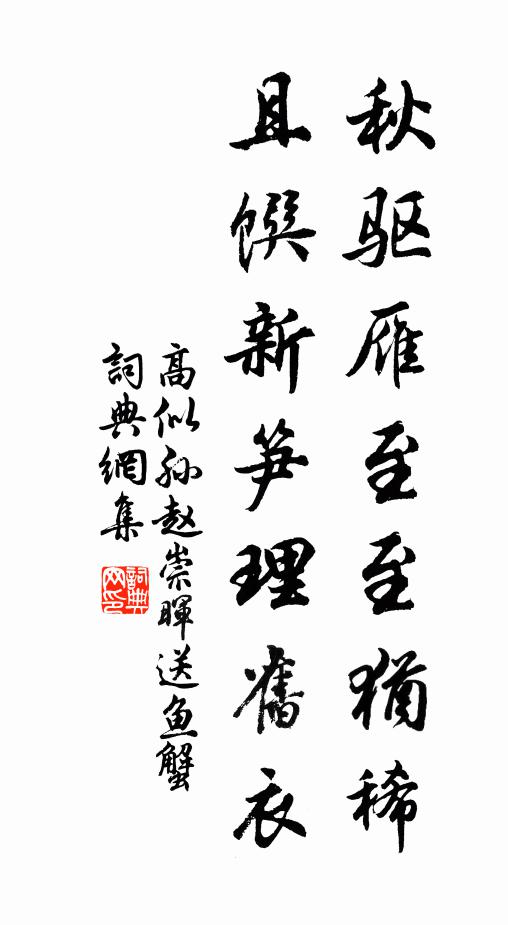 秋驱雁至至犹稀
且馔新笋理旧衣
高似孙赵崇暉送鱼蟹
詞典網集
詞典网印